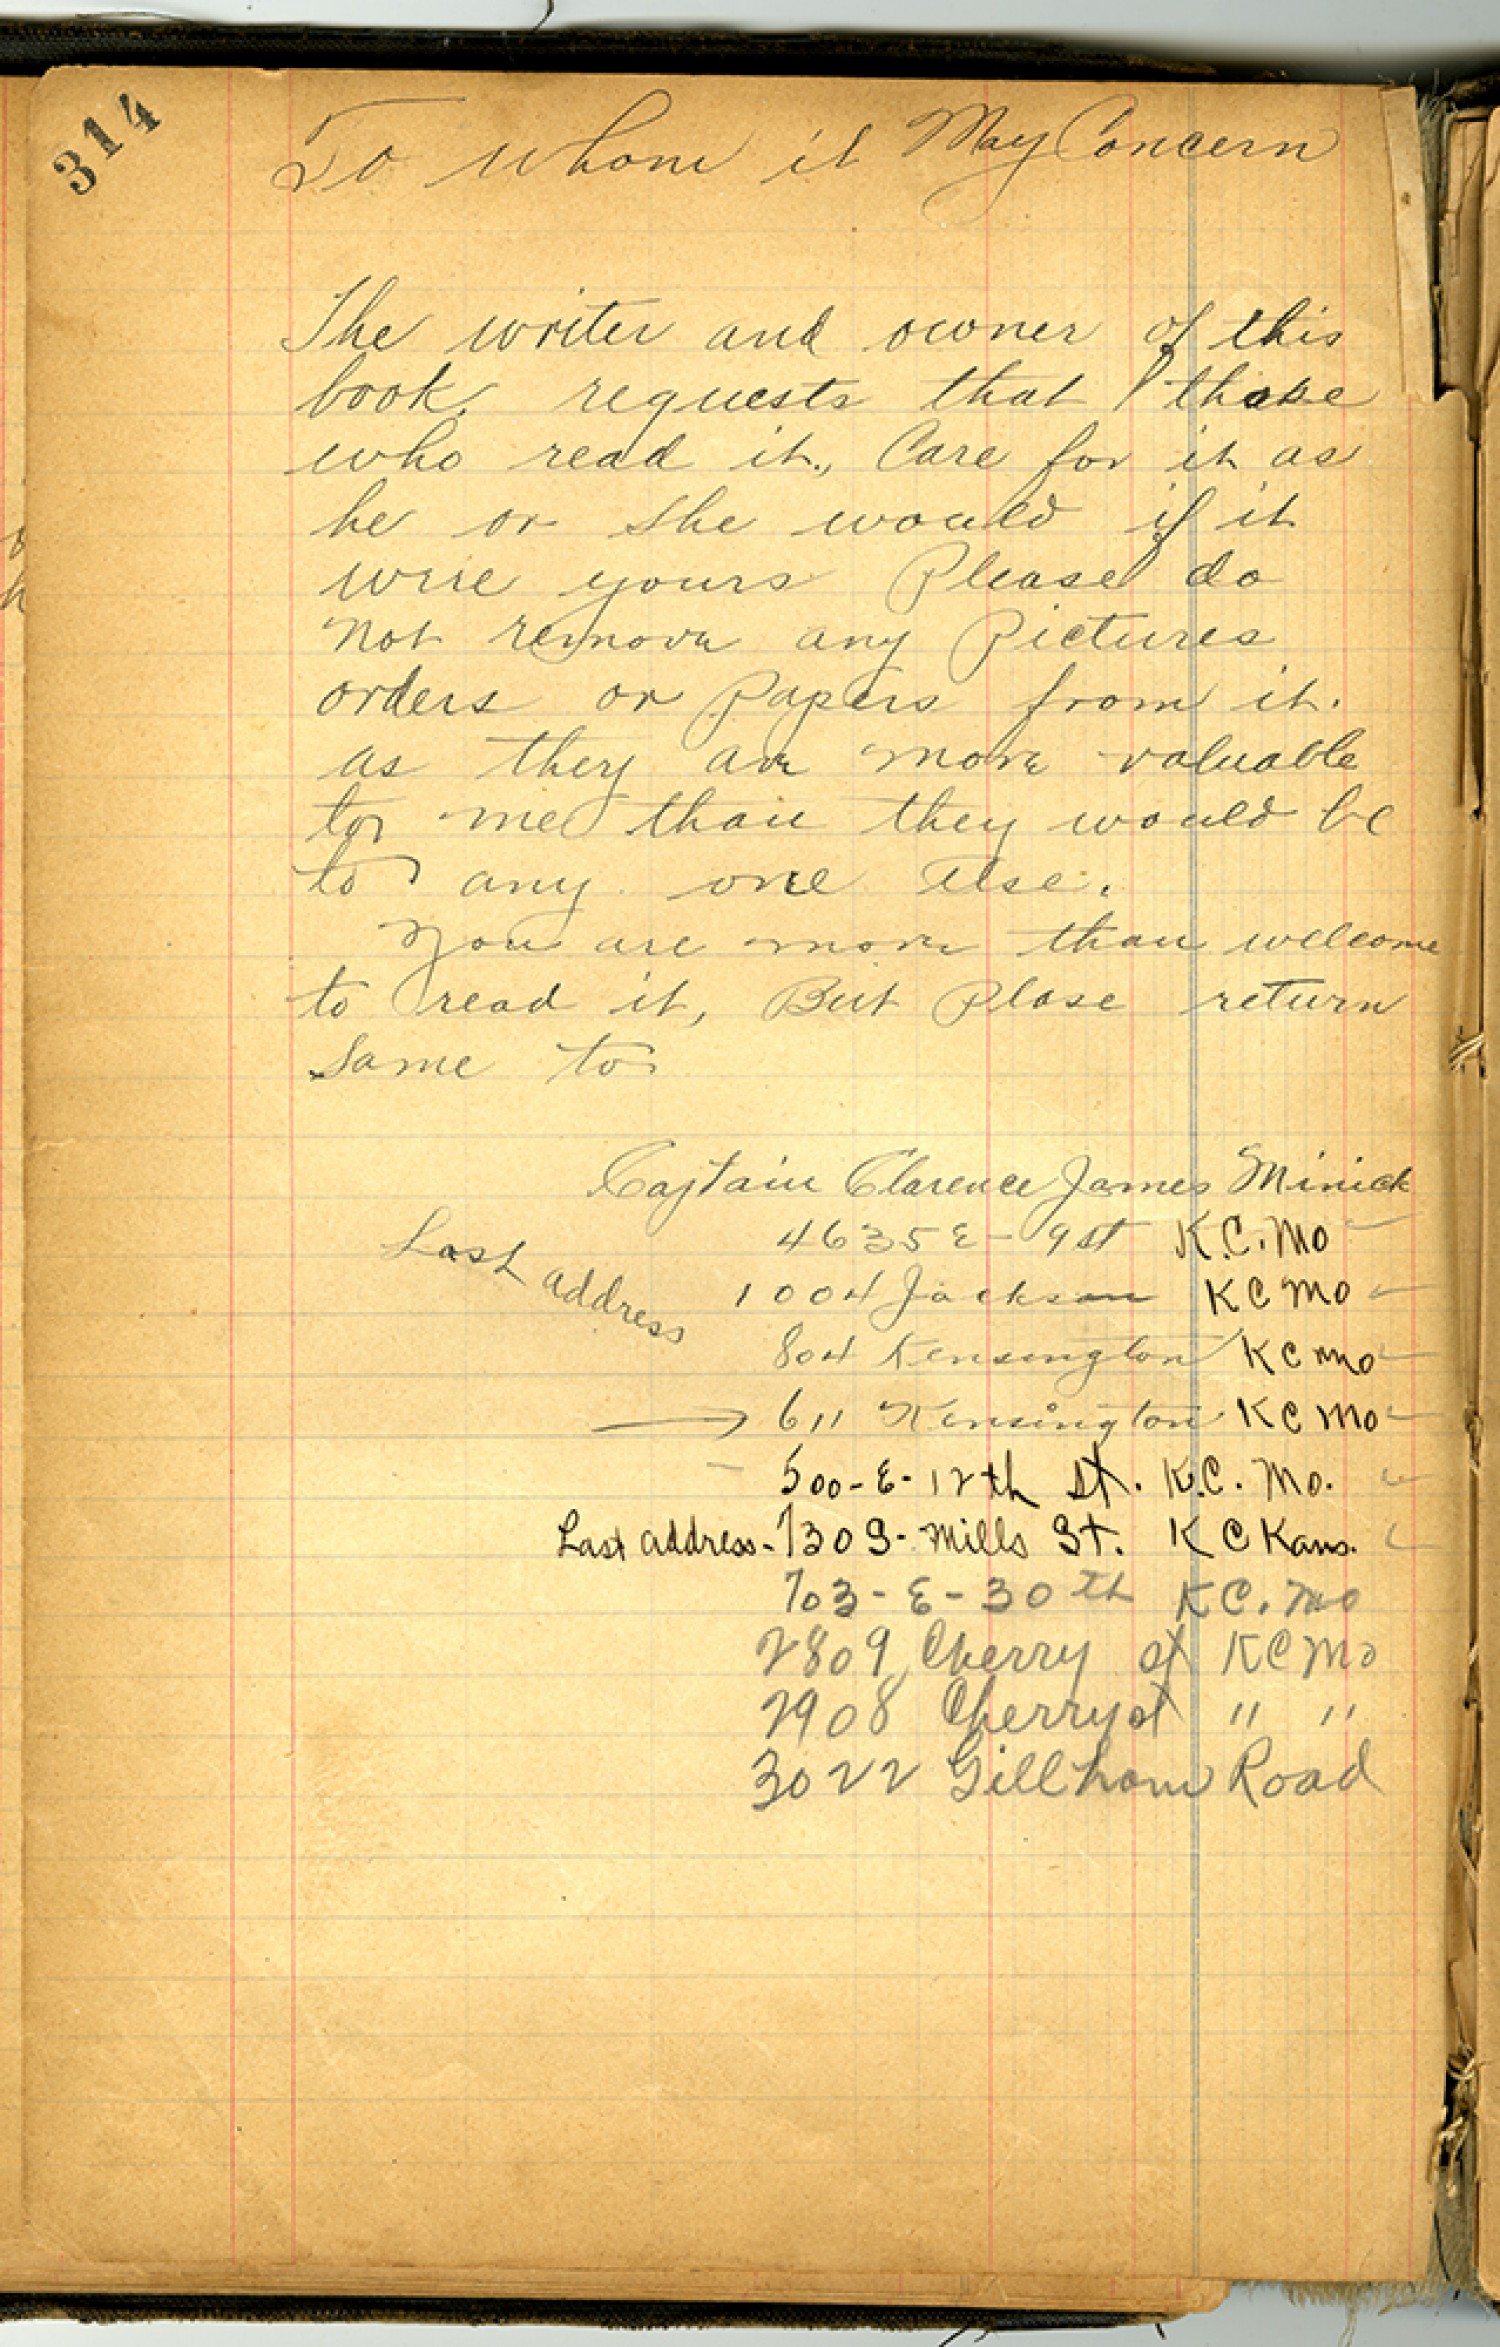 314
To whom it May Concern
The writer and owner of this
book, requests that those
who read it., Care for it as
he or she would if it
were yours Please do
not remove any Pictures
orders or Papers from it.
as they are more valuable
to me than they would be
to any one else.
You are more than welcome
to read it, But Plase return
same to
Captain Clarence James Minick
4635 E- 9 st K.C. Mo
Last address
1004 Jackson K C Mo
804 Kensington K C Mo
611 Kensington K C Mo
500-E-12th St. K.C. Mo.
Last address- 730 S- Mills St. K C Kans.
703-E-30th K C. Mo
2809 Cherry st K C Mo
2908 Cherry st " "
3022 Gillham Road